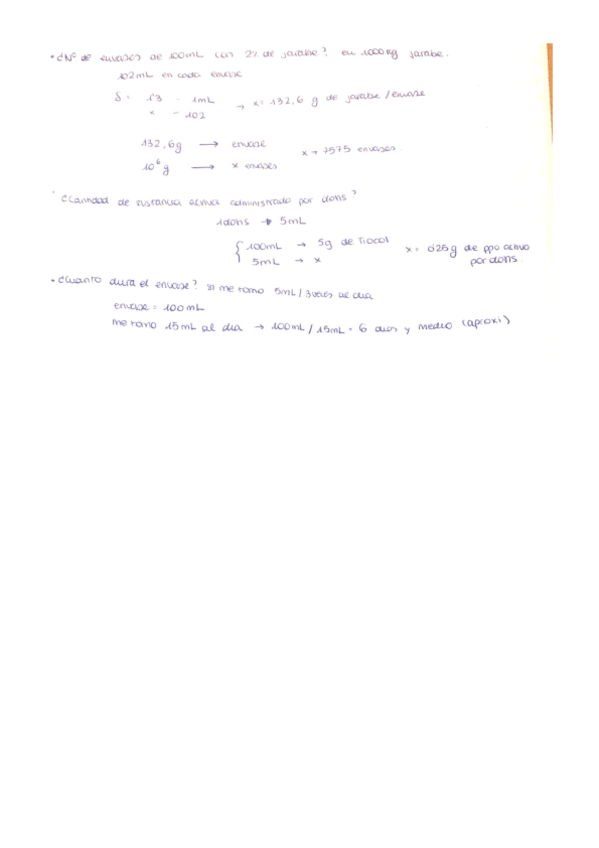 • ¿Nº de envases de 100mL con 2% de jarabe? en 1000Kg jarabe.
102mL en cada envase
δ = 1'3 - 1mL → x = 132,6 g de jarabe/envase
x - 102
132,6g → envase x → 7575 envases.
10⁶g → x envases
¿Cantidad de sustancia activa administrada por dosis?
1dosis → 5mL
{ 100mL → 5g de Tiocol x = 0'25g de ppo activo
5mL → x por dosis.
• ¿Cuánto dura el envase? si me tomo 5mL/3veces al día
envase = 100mL
me tomo 15mL al día → 100mL/15mL = 6 días y medio (aproxi)